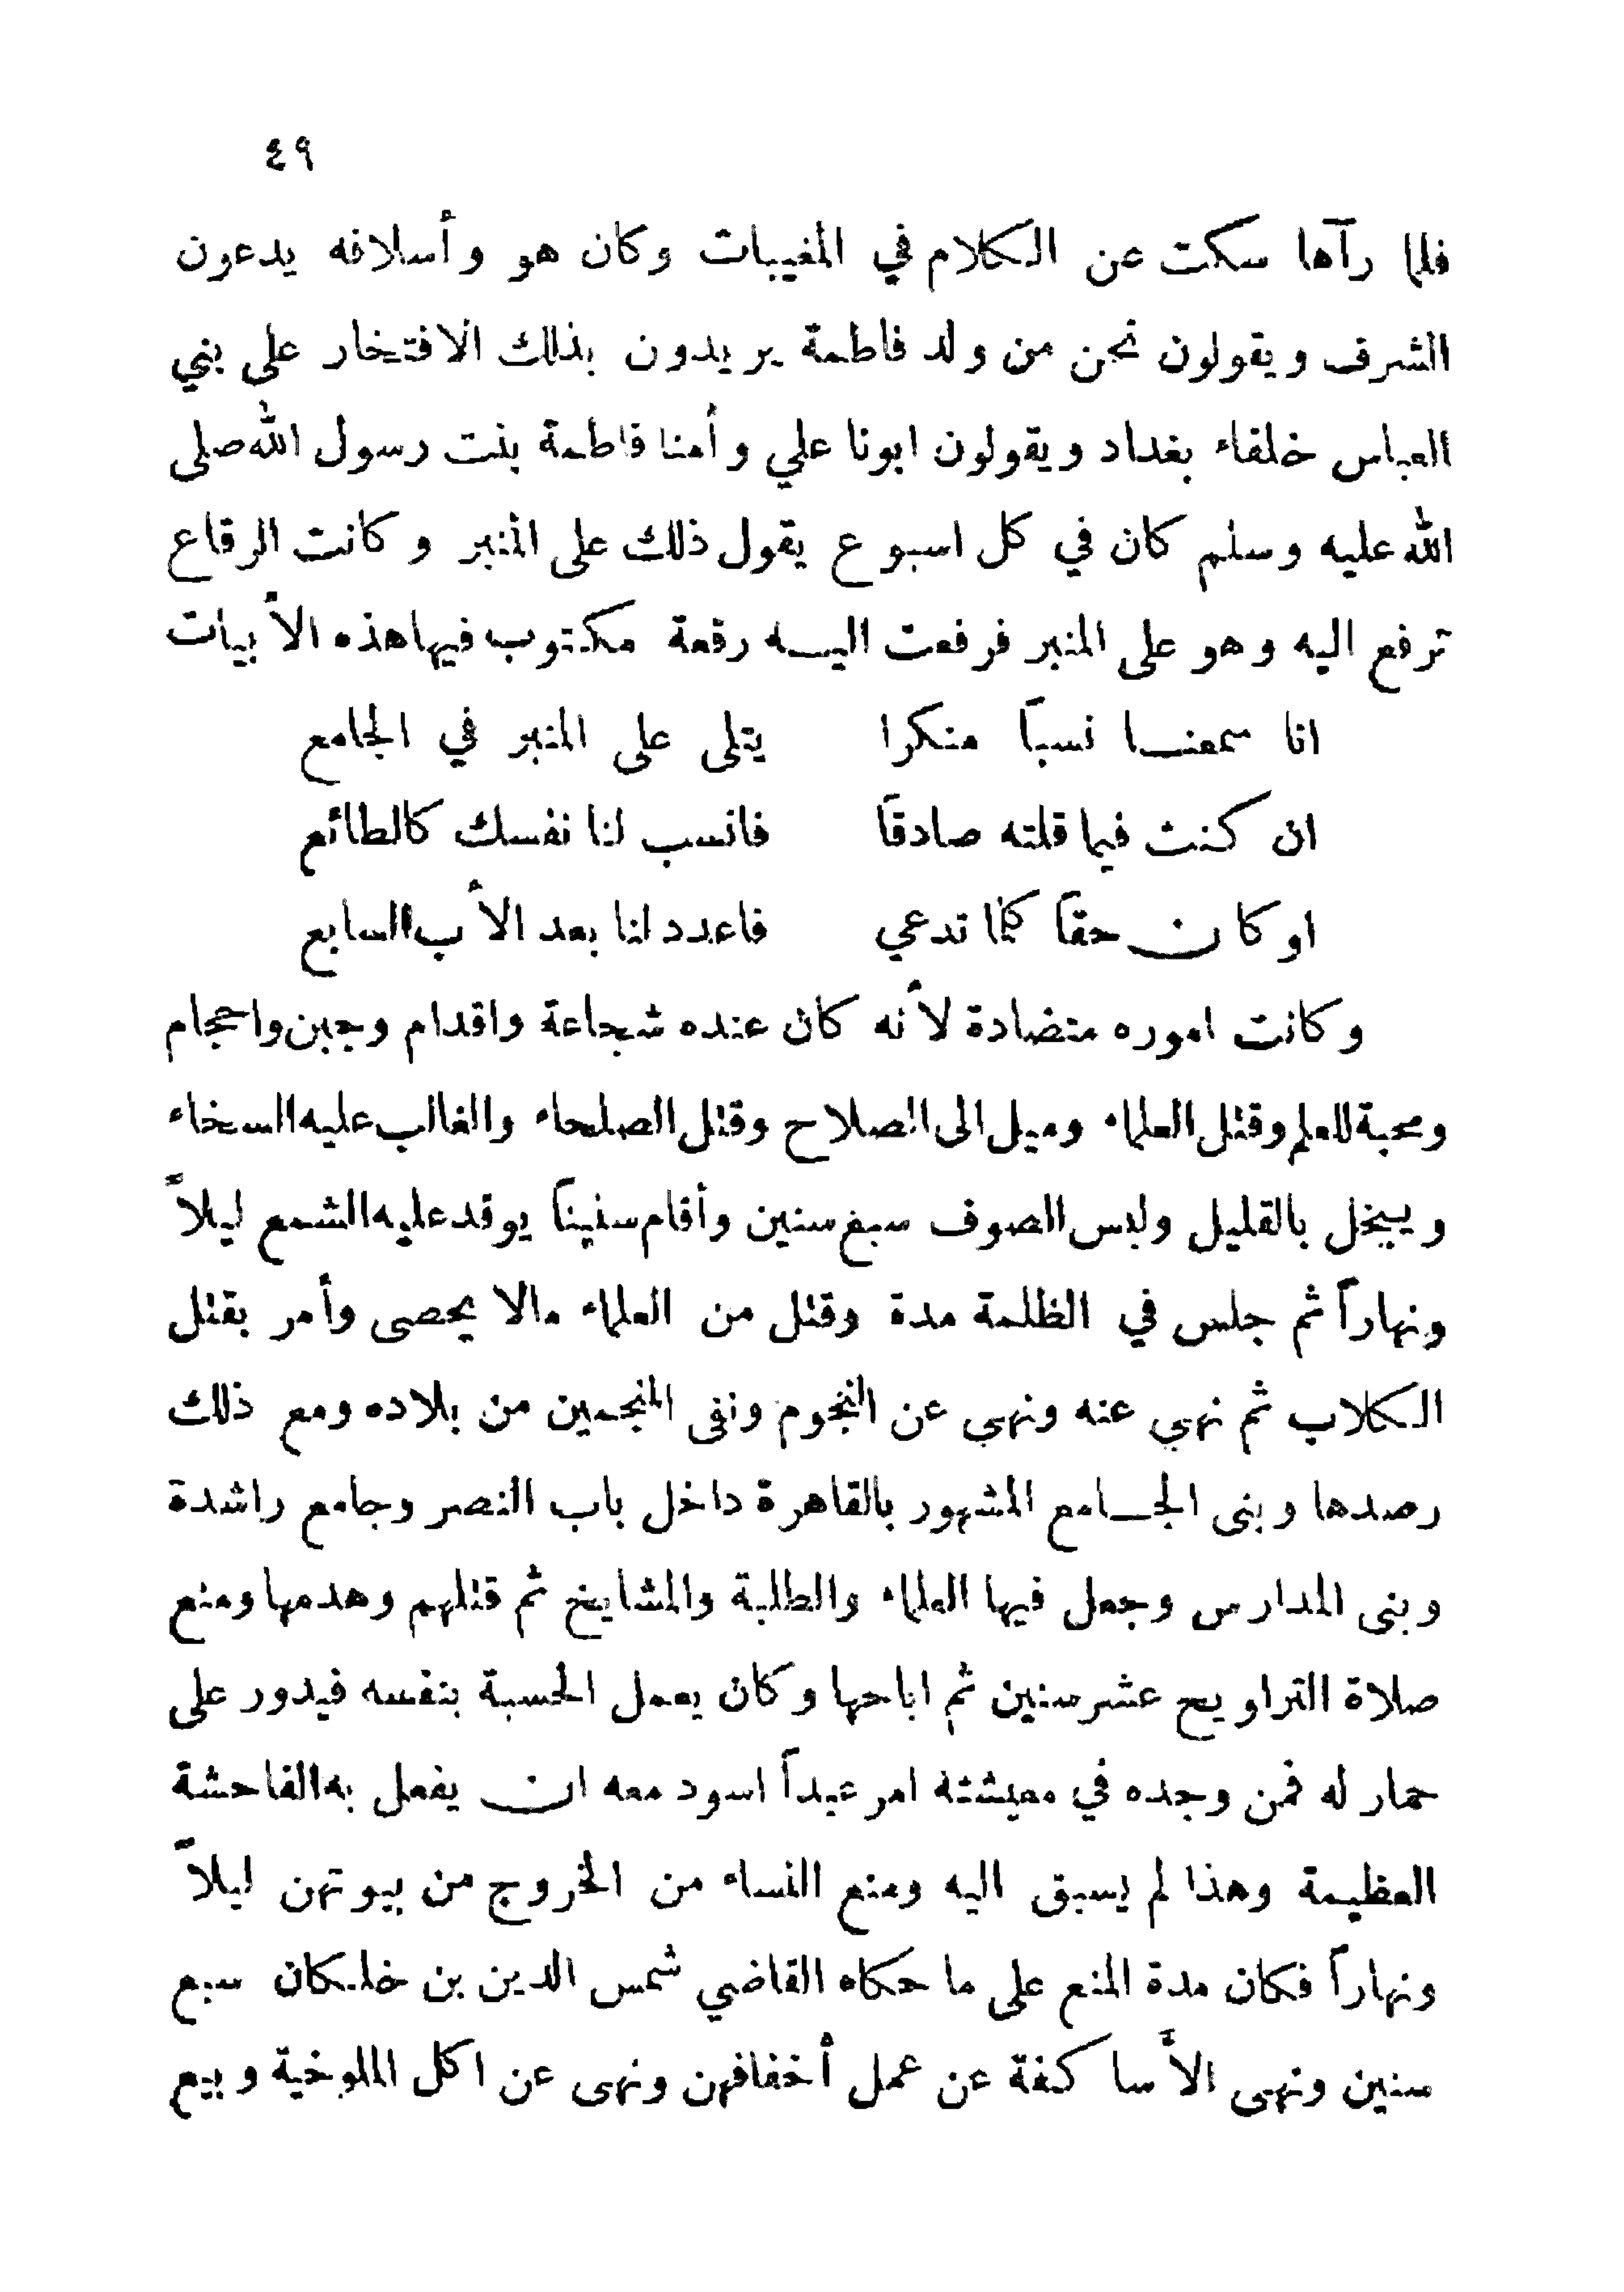 ٤٩
فلما رآها سكت عن الكلام في المغيبات وكان هو وأسلافه يدعون
الشرف ويقولون نحن من ولد فاطمة يريدون بذلك الافتخار على بني
العباس خلفاء بغداد ويقولون ابونا علي وأمنا فاطمة بنت رسول الله صلى
الله عليه وسلم كان في كل اسبوع يقول ذلك على المنبر وكانت الرقاع
ترفع اليه وهو على المنبر فرفعت اليه رقعة مكتوب فيها هذه الأبيات
انا سمعنا نسباً منكرا يتلى على المنبر في الجامع
ان كنت فيما قلته صادقاً فانسب لنا نفسك كالطائع
او كان حقاً كلما تدعي فاعدد لنا بعد الأب السابع
وكانت اموره متضادة لأنه كان عنده شجاعة واقدام وجبن واحجام
ومحبة للعلم وقتل العلماء وميل الى الصلاح وقتل الصلحاء والغالب عليه السخاء
ويبخل بالقليل ولبس الصوف سبع سنين وأقام سنيناً يوقد عليه الشمع ليلاً
ونهاراً ثم جلس في الظلمة مدة وقتل من العلماء مالا يحصى وأمر بقتل
الكلاب ثم نهي عنه ونهي عن النجوم ونفى المنجمين من بلاده ومع ذلك
رصدها وبنى الجامع المشهور بالقاهرة داخل باب النصر وجامع راشدة
وبنى المدارس وجعل فيها العلماء والطلبة والمشايخ ثم قتلهم وهدمها ومنع
صلاة التراويح عشر سنين ثم اباحها وكان يعمل الحسبة بنفسه فيدور على
حمار له فمن وجده في معيشته امر عبداً اسود معه ان يفعل به الفاحشة
العظيمة وهذا لم يسبق اليه ومنع النساء من الخروج من بيوتهن ليلاً
ونهاراً فكان مدة المنع على ما حكاه القاضي شمس الدين بن خلكان سبع
سنين ونهى الأساكفة عن عمل أخفافهن ونهى عن اكل الملوخية وبيع